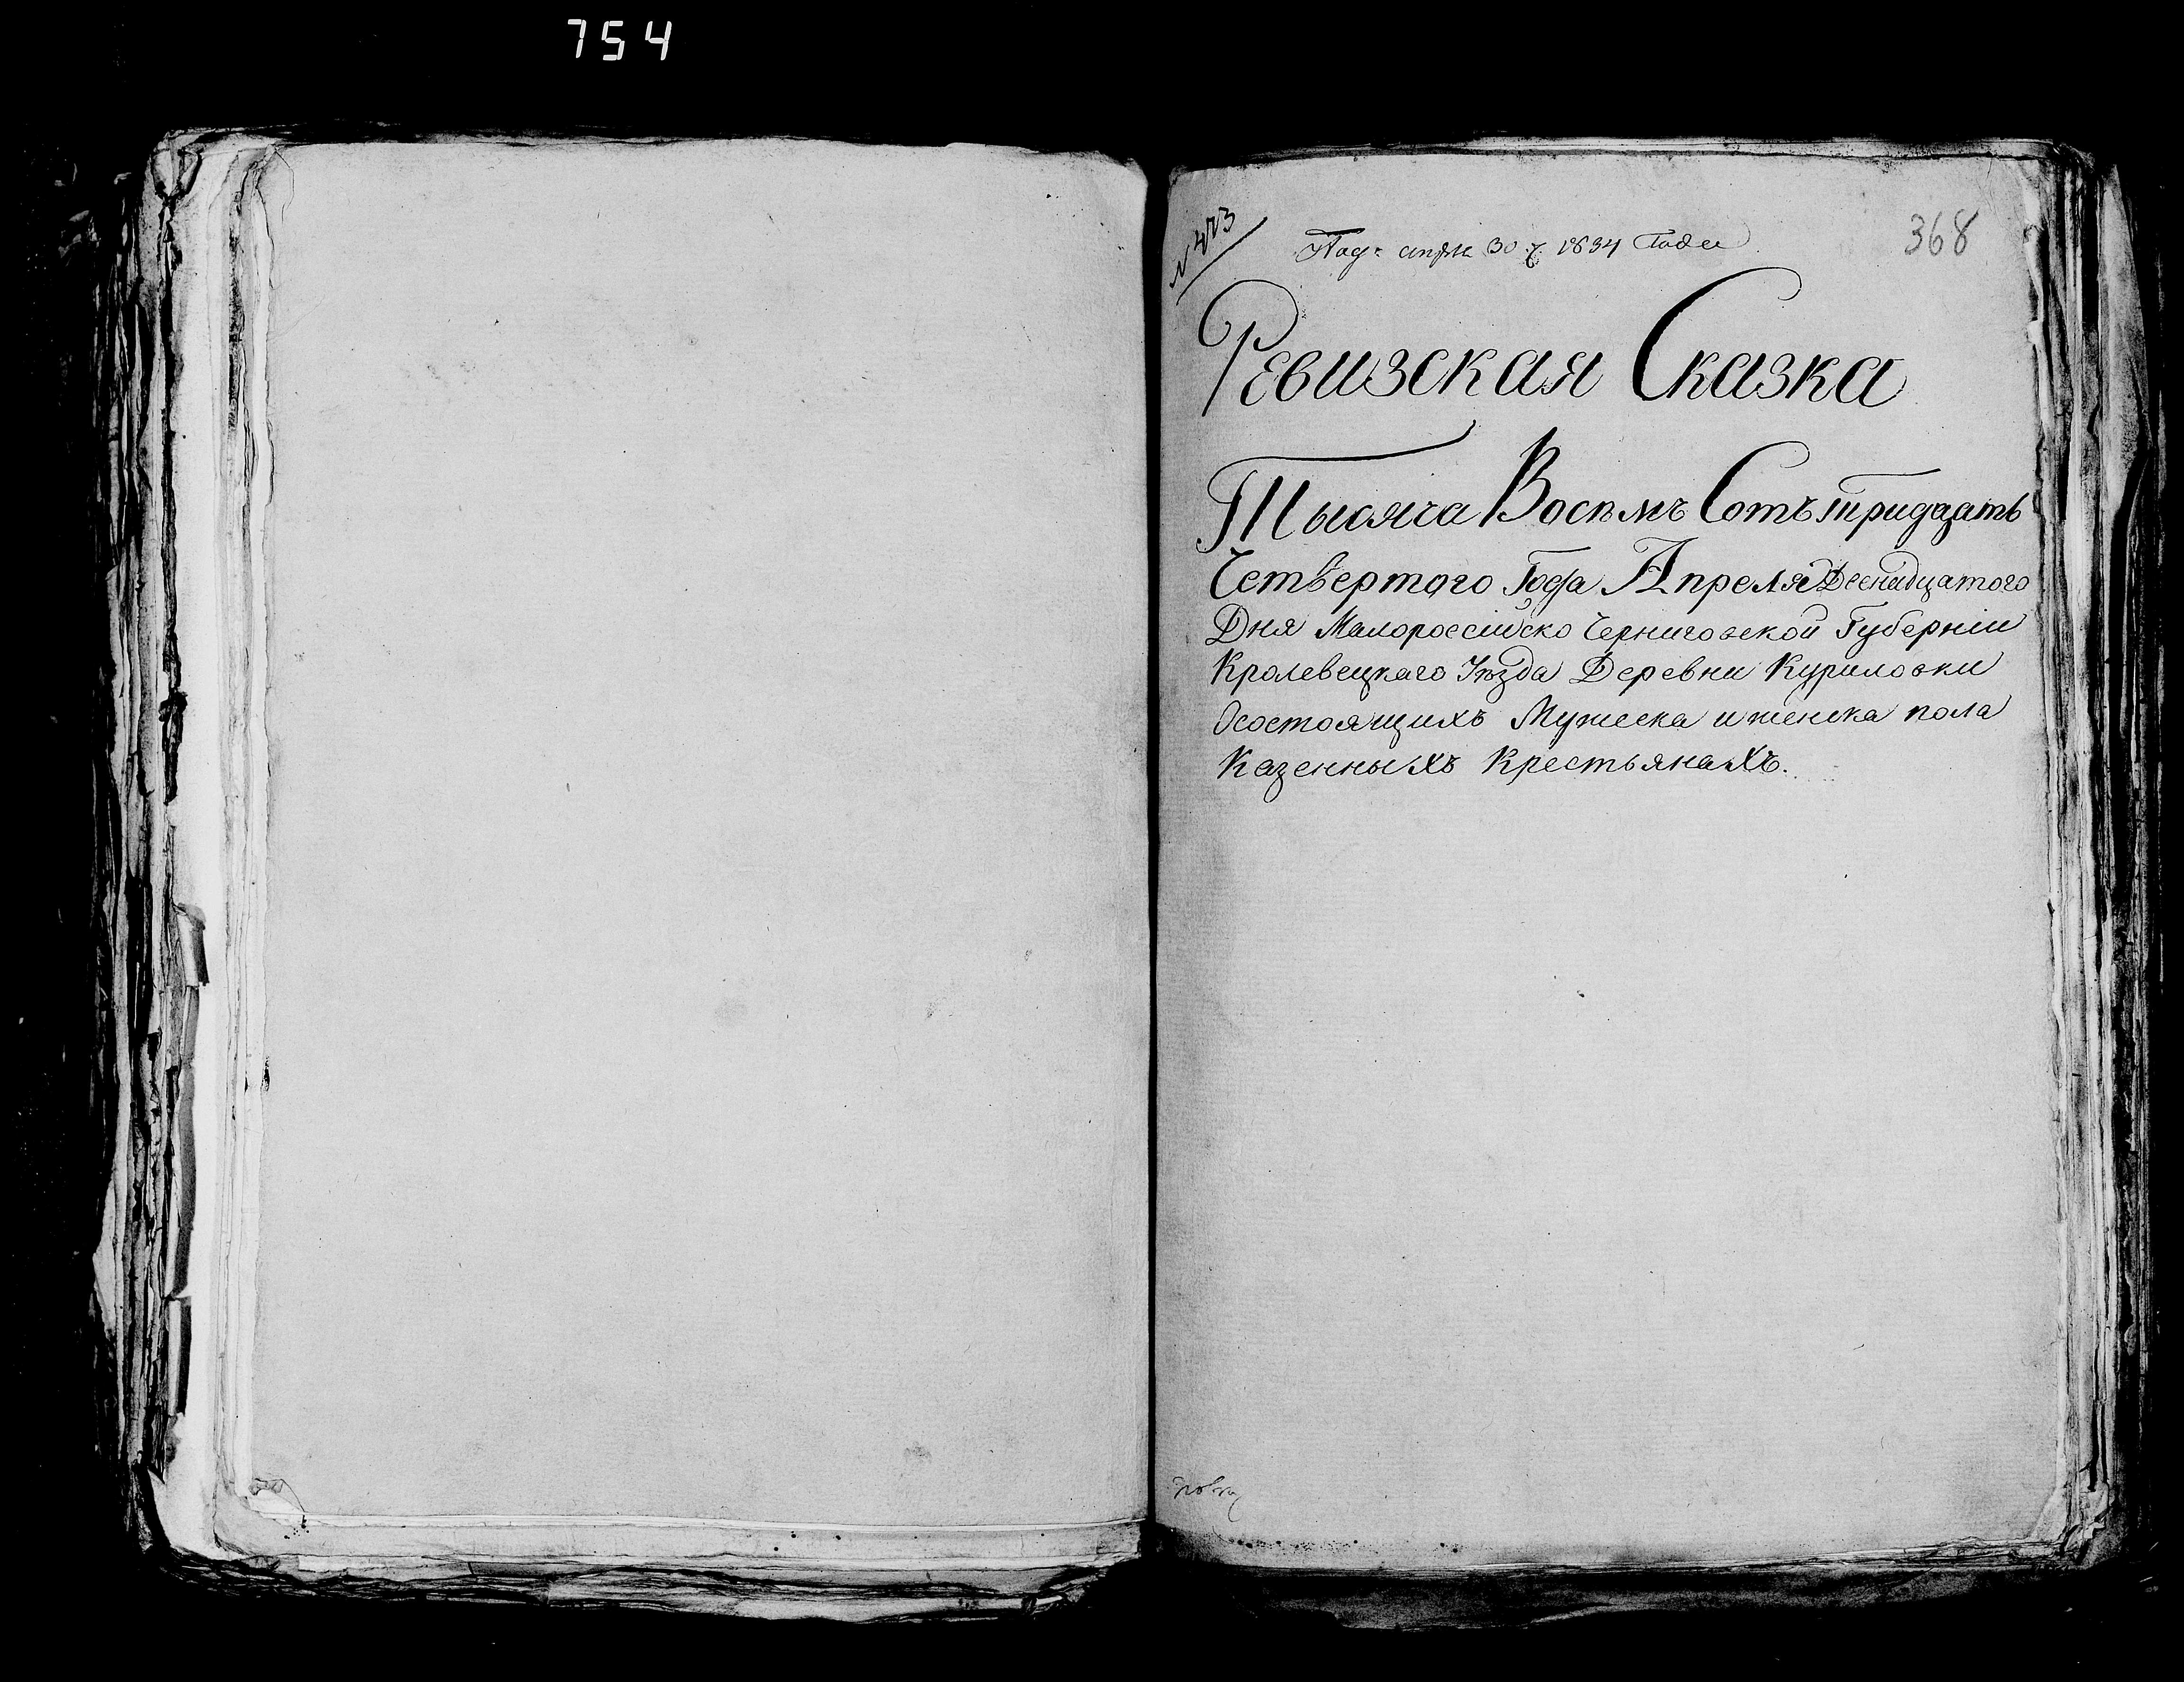 754
N 473
Под: апрля 30 ч 1834 Года
368
Ревизская Сказка
Тысяча Восемъ Сотъ тридцать
Четвертого Года Апреля
Дня Малороссійско Черниговской Губерніи
Кролевецкаго Уѣзда Деревни Куриловки
Осостоящихъ Мужеска и женска пола
Казенныхъ Крестьянахъ.